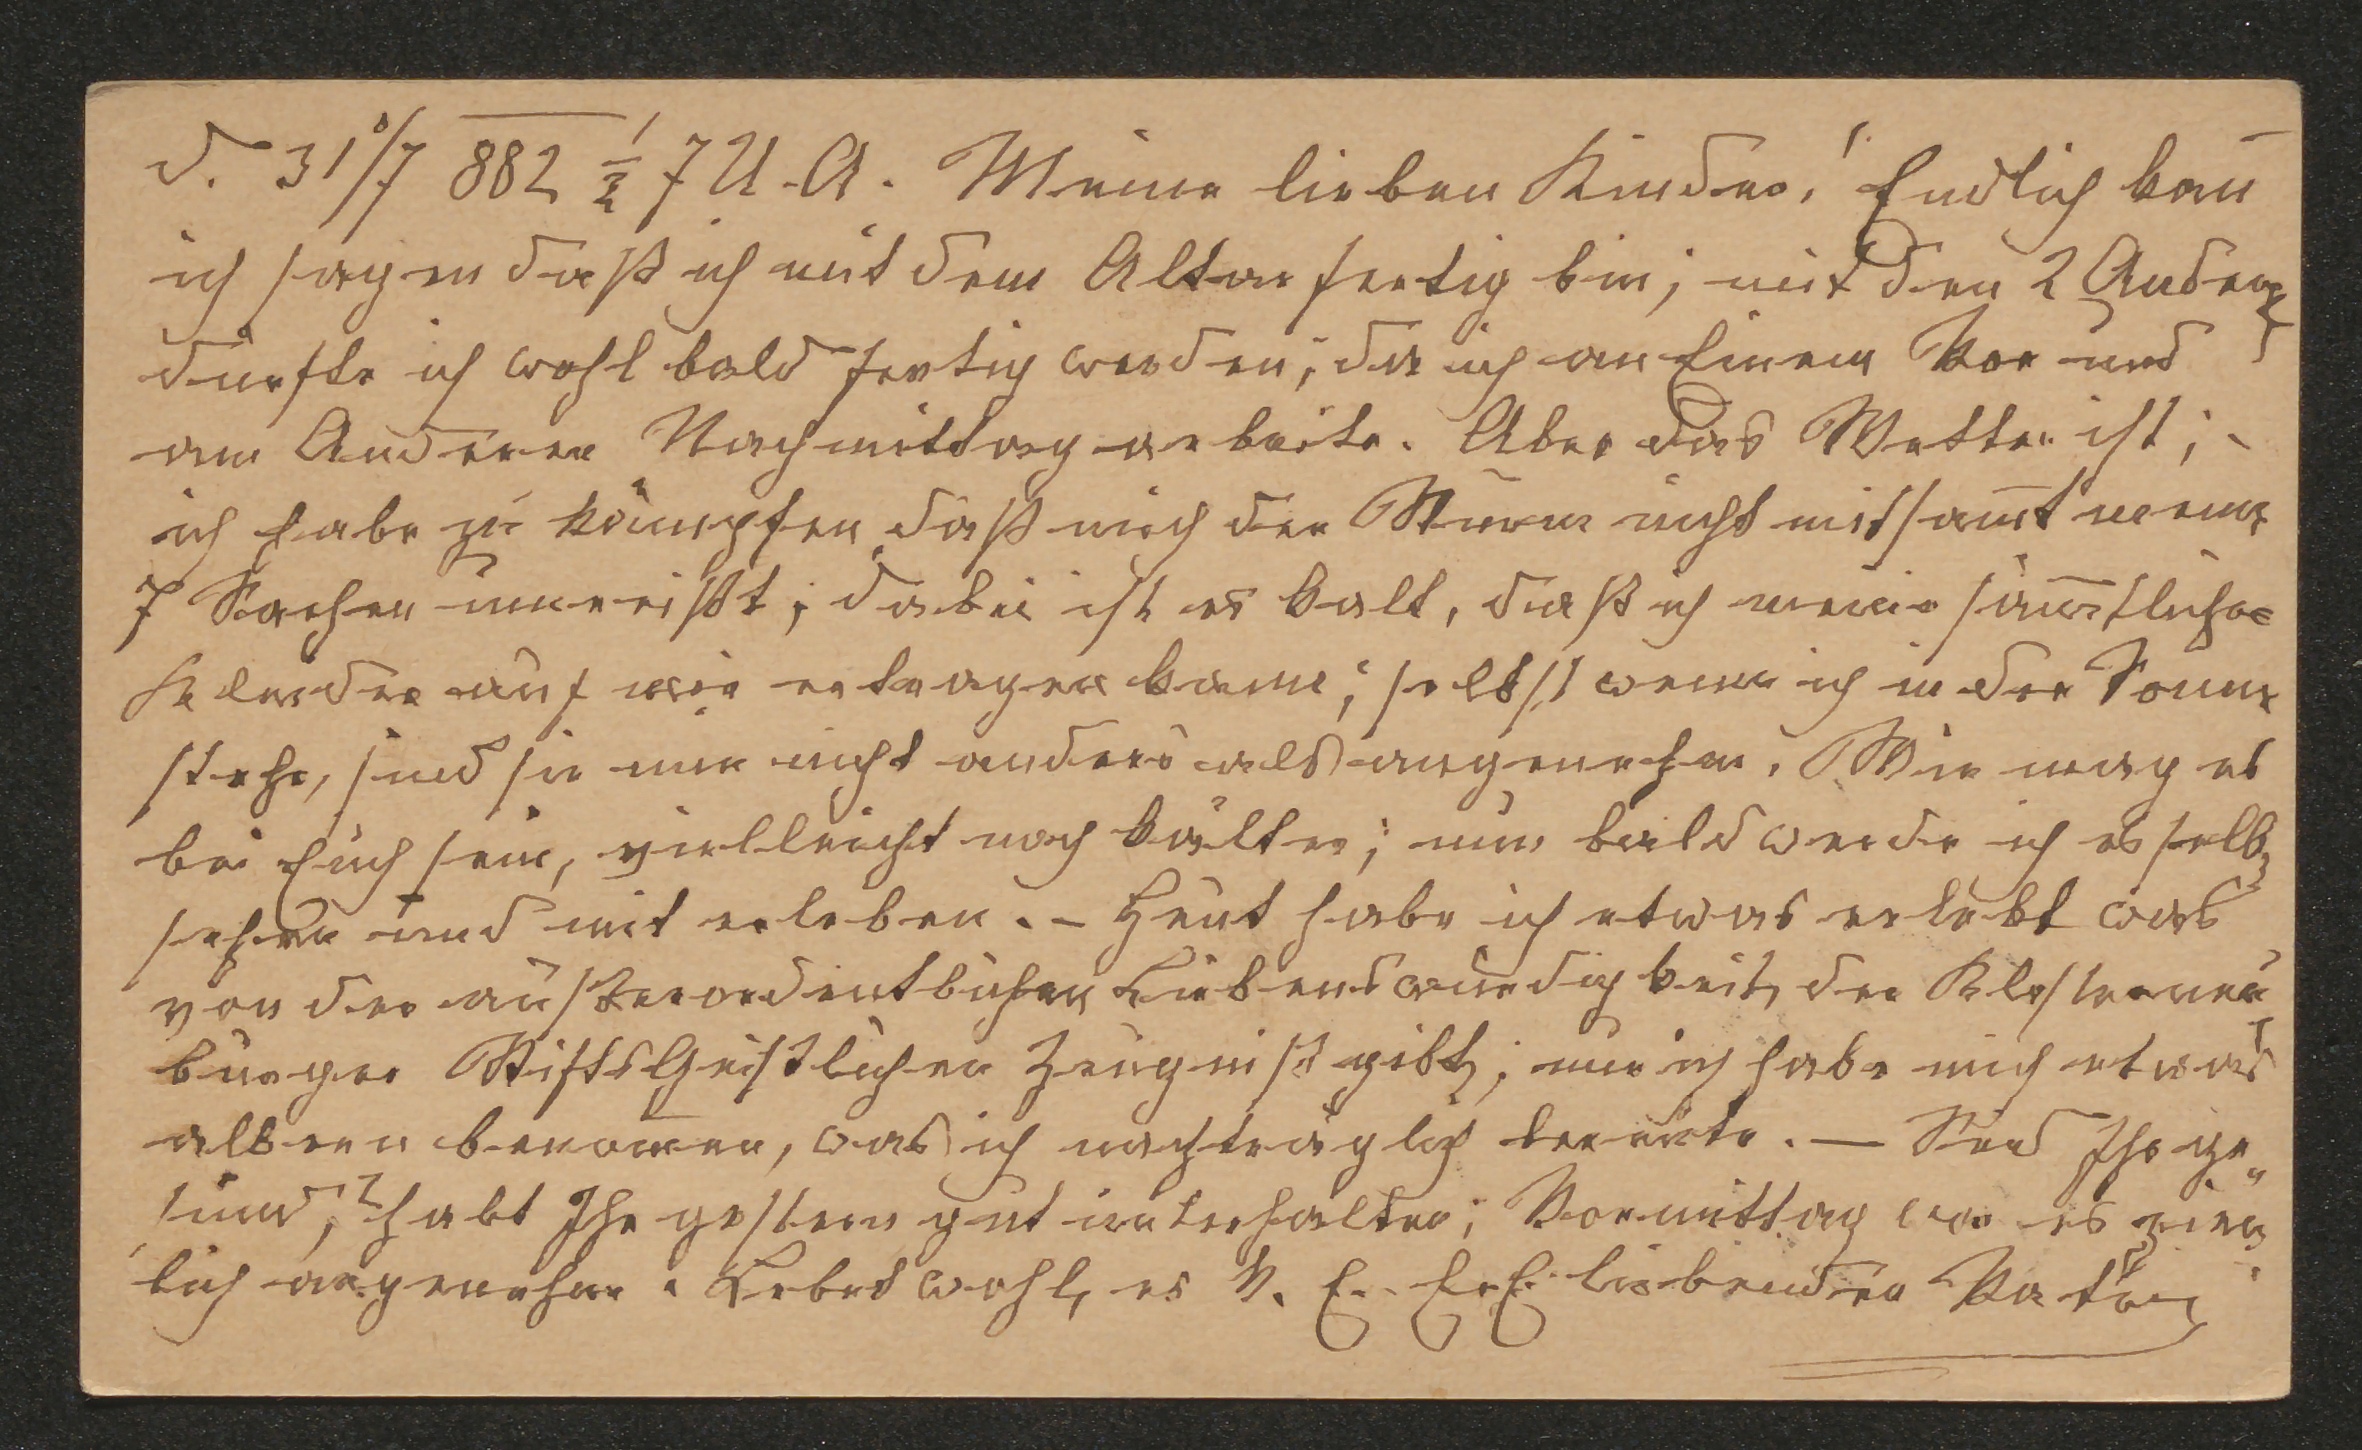 d. 31/7 882 ½ 7 U. A. Meine lieben Kinder! Endlich kan̄
ich sagen daß ich mit dem Altar fertig bin; mit den 2 Andern
dürfte ich wohl bald fertig werden; da ich an Einem Vor und
am Anderen Nachmittag arbeite. Aber das Wetter ist; -
ich habe zu kämpfen daß mich der Sturm nicht mitsam̄t meine
7 Sachen umreißt; dabei ist es kalt, daß ich meine säm̄tliche
Kleider auf mir ertragen kann; selbst wenn ich in der Sonne
stehe, sind sie mir nicht anders als angenehm. Wie mag es
bei Euch sein, vielleicht noch kälter; nun bald werde ich es selbst
sehen und mit erleben. - Heut habe ich etwas erlebt was
von der außerordentlichen Liebenswürdigkeit, der Klosterneu
burger StiftsGeistlichen Zeugniß gibt; nur ich habe mich etwas
albern benom̄en, was ich nachträglich bereute. — Seid Ihr ge„
sund, habt Ihr gestern gut unterhalten; Vormittag war es ziem
lich angenehm. Lebet wohl, es k. E. Eu. E. liebender Vater